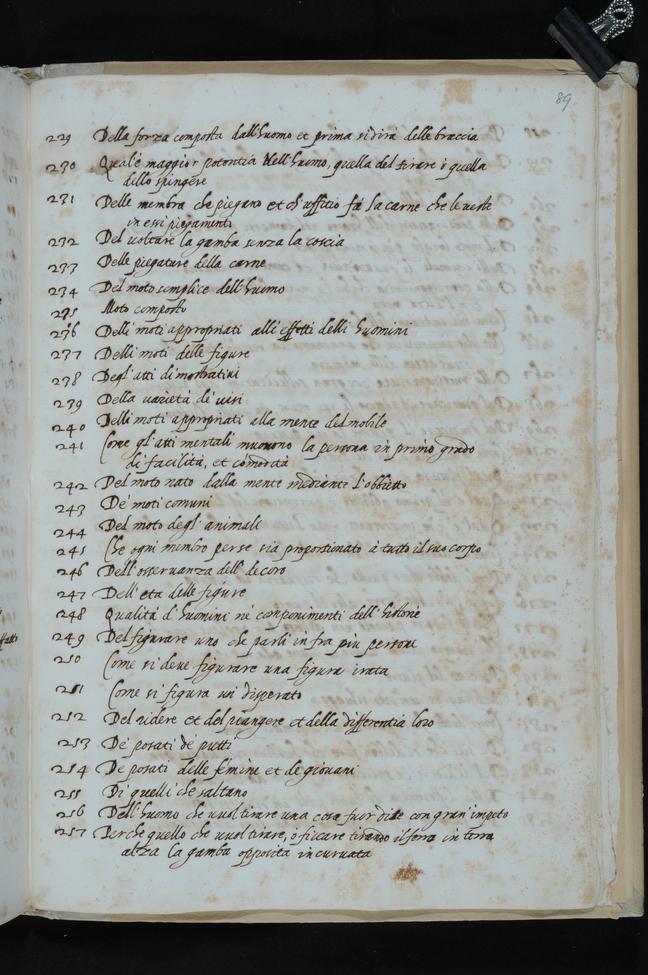 89
229 Della forza composta dall'huomo et prima si dira delle braccia
230 Qual'è maggior potentia dell'huomo, quella del tirare ò quella
dello spingere
231 Delle membra che piegano et ch'uffitio fà la carne che le ueste
in essi piegamenti
232 Del uoltare la gamba senza la coscia
233 Delle piegature della carne
234 Del moto semplice dell'huomo
235 Moto composto
236 Delli moti appropriati alli effetti delli huomini
237 Delli moti delle figure
238 Degl'atti dimostratiui
239 Della varietà de' uisi
240 Delli moti appropriati alla mente del mobile
241 Come gl'atti mentali muouono la persona in primo grado
di facilità, et comodità
242 Del moto nato dalla mente mediante l'obbietto
243 De' moti comuni
244 Del moto degl'animali
245 Che ogni membro per se sia proportionato à tutto il suo corpo
246 Dell'osseruanza dell decoro
247 Dell'età delle figure
248 Qualità d'huomini ne componimenti dell'historie
249 Del figurare uno che parli in fra più persone
250 Come si deue figurare una figura irata
251 Come si figura un disperato
252 Del ridere et del piangere et della differentia loro
253 De' posati de' putti
254 De posati delle femine et de giouani
255 Di quelli che saltano
256 Dell'huomo che uuol tirare una cosa fuor di se con gran impeto
257 Perche quello che uuol tirare, ò ficcare tirando il ferro in terra
alza la gamba opposita incuruata